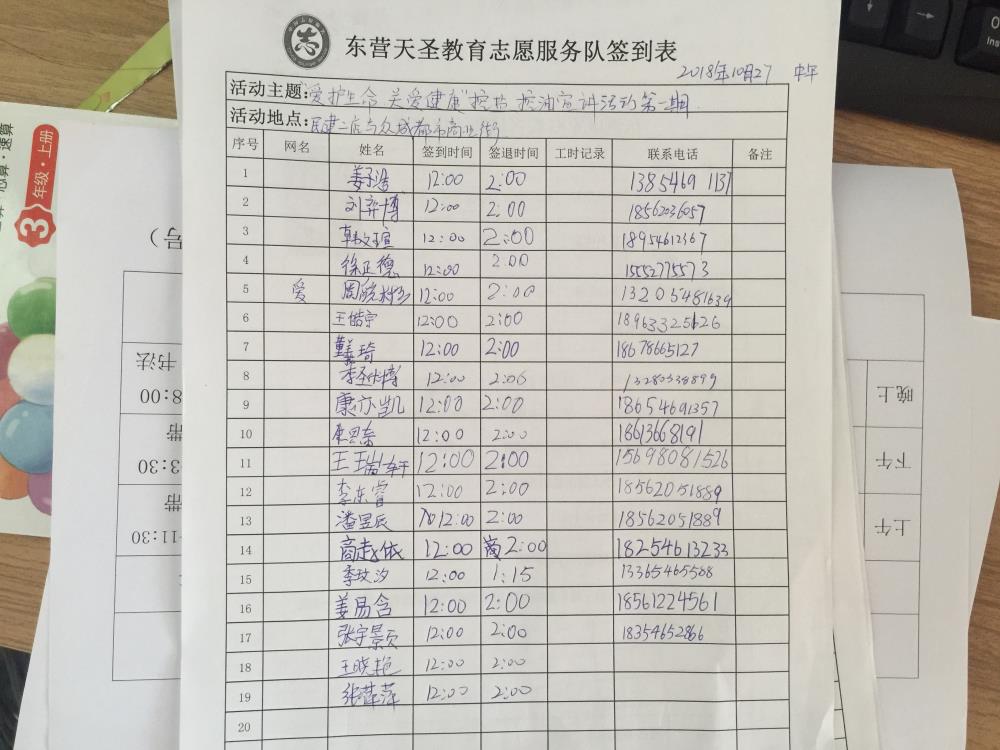 东营天圣教育志愿服务队签到表
2018年10月27 中午
活动主题:爱护生命 关爱健康"控盐 控油宣讲活动第一期
活动地点:民建二店与众成都市商业街
序号 网名 姓名 签到时间 签退时间 工时记录 联系电话 备注
1 姜子浩 12:00 2:00 1385469 1137
2 刘弈博 12:00 2:00 18562036057
3 韩文瑄 12:00 2:00 18954612367
4 徐正德 12:00 2:00 15552775573
5 爱 周皖 12:00 2:00 13205481639
6 王皓宇 12:00 2:00 18963325626
7 琦 12:00 2:00 18678665127
8 李圣 博 12:00 2:06
9 康亦凯 12:00 2:00 18654691357
10 12:00 2:00 18613668191
11 王瑞 12:00 2:00 15698081526
12 李东睿 12:00 2:00 18562051889
13 潘昱辰 12:00 2:00 18562051889
14 商赵依 12:00 2:00 18254613233
15 李玟汐 12:00 1:15 13365465508
16 姜易含 12:00 2:00 18561224561
17 张宇景 12:00 2:00 18354652866
18 王晓艳 12:00 2:00
19 张萍萍 12:00 2:00
20
3 年级·上册
心算·速算
号)
书法
8:00
带
3:30
带
-11:30
晚上
下午
上午